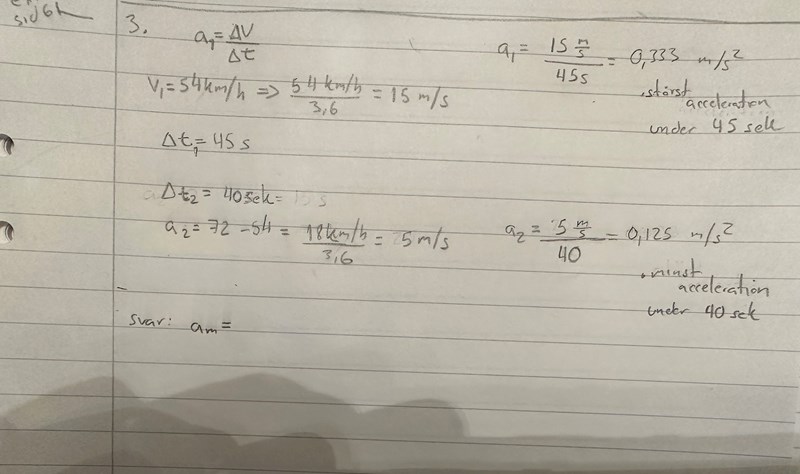 sid 61
3. a₁ = ΔV / Δt
V₁ = 54 km/h => 54 km/h / 3,6 = 15 m/s
Δt₁ = 45 s
Δt₂ = 40 sek =
a₂ = 72 - 54 = 18 km/h / 3,6 = 5 m/s
svar: aₘ =
a₁ = 15 m/s / 45 s = 0,333 m/s²
. störst
acceleration
under 45 sek
a₂ = 5 m/s / 40 = 0,125 m/s²
. minst
acceleration
under 40 sek